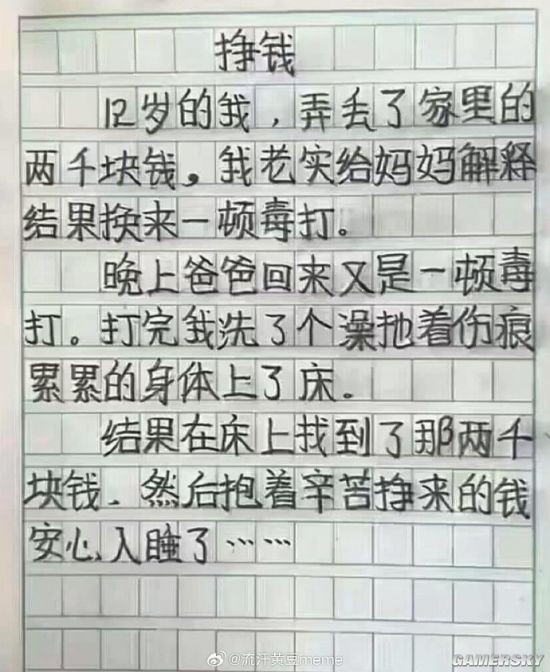 挣钱
12岁的我，弄丢了家里的
两千块钱。我老实给妈妈解释
结果换来一顿毒打。
晚上爸爸回来又是一顿毒
打。打完我洗了个澡拖着伤痕
累累的身体上了床.
结果在床上找到了那两千
块钱、然后抱着辛苦挣来的钱
安心入睡了……
@流汗黄豆meme
GAMERSKY